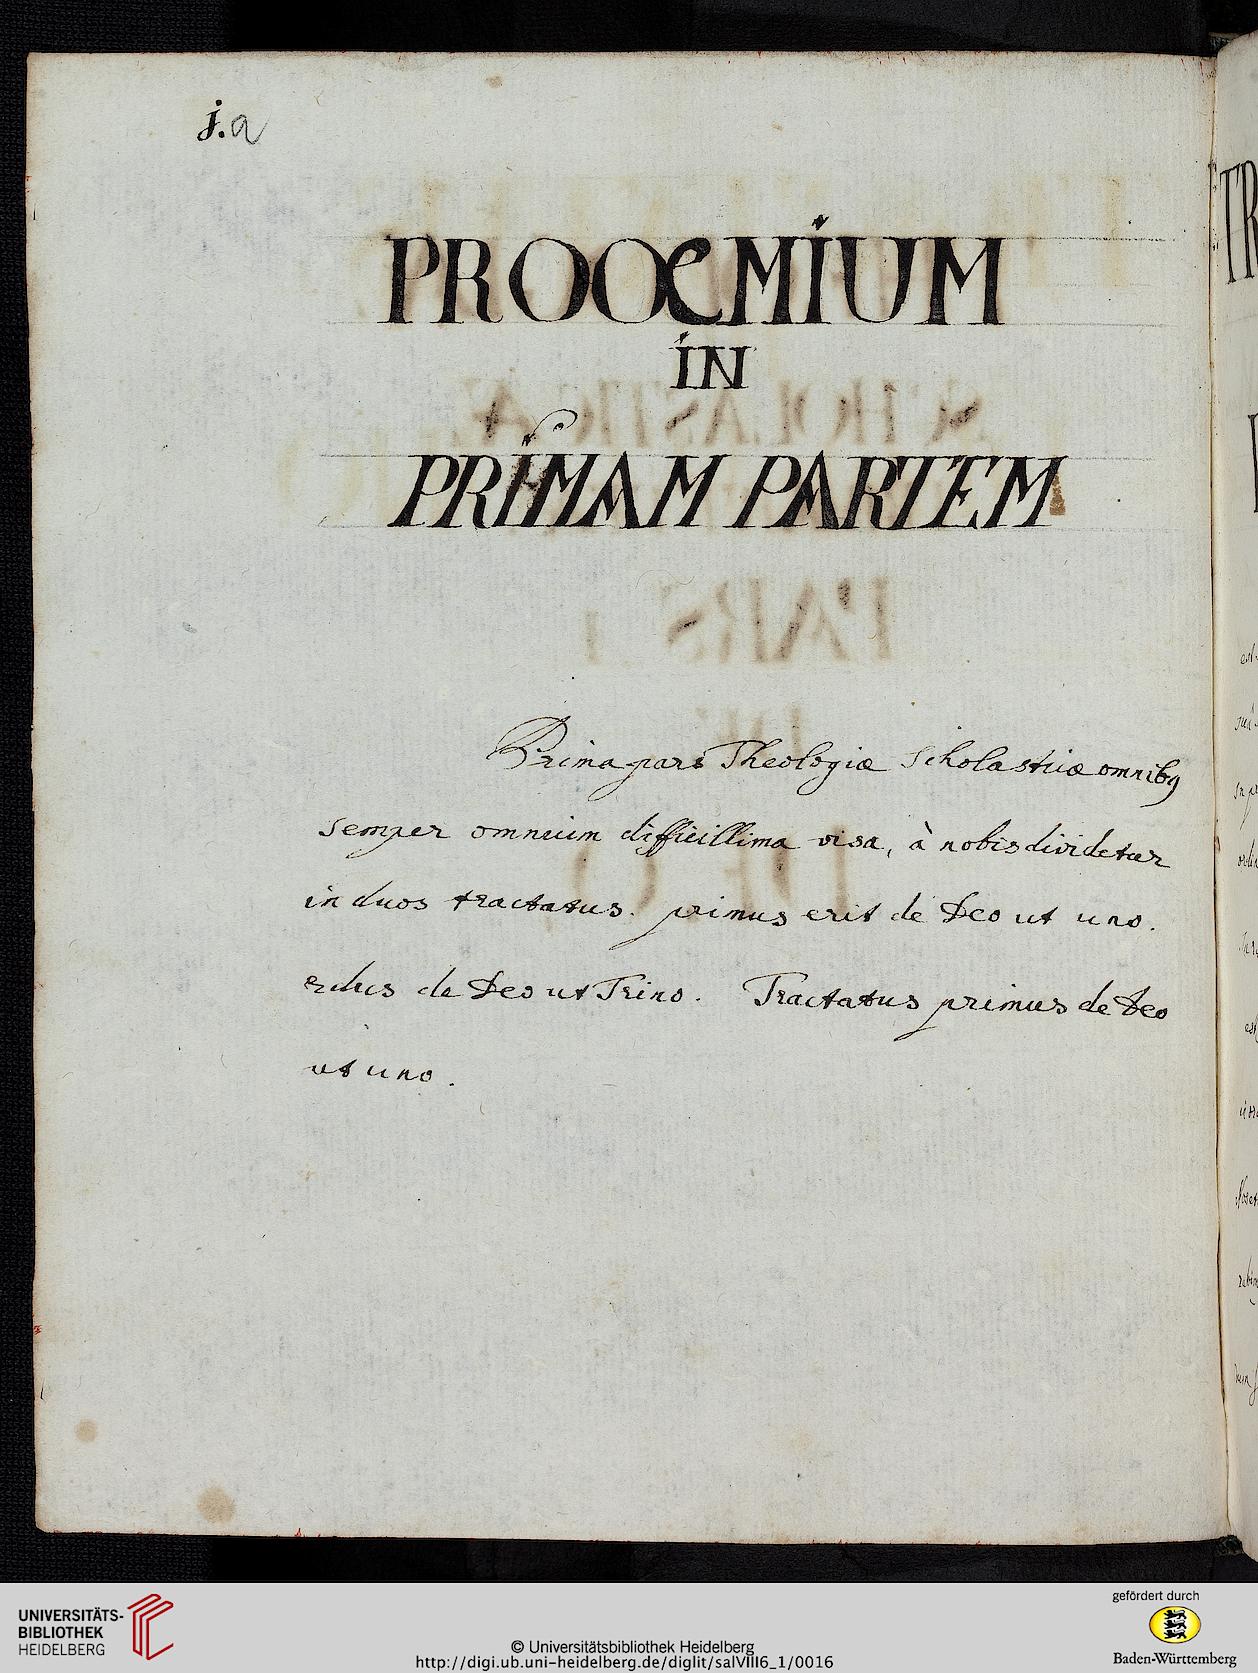 j.a
PROOEMIUM
IN
PRIMAM PARTEM
Prima pars Theologiæ Scholasticæ omnibꝰ
semper omnium difficillima visa, à nobis dividetur
in duos tractatus. primus erit de Deo ut uno.
2dus de Deo ut Trino. Tractatus primus de Deo
ut uno.
UNIVERSITÄTS-
BIBLIOTHEK
HEIDELBERG
© Universitätsbibliothek Heidelberg
http://digi.ub.uni-heidelberg.de/diglit/salVIII6_1/0016
gefördert durch
Baden-Württemberg